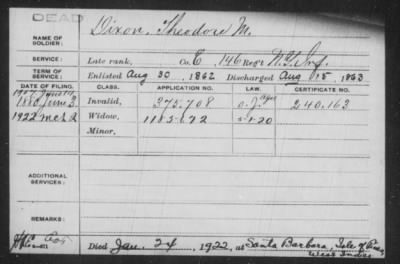 DEAD
Dixon, Theodore M.
NAME OF SOLDIER:
SERVICE: Late rank, Co. E, 146 Reg't N.Y. Inf.
TERM OF SERVICE: Enlisted Aug 30, 1862 Discharged Aug 15, 1863
DATE OF FILING. CLASS. APPLICATION NO. LAW. CERTIFICATE NO.
1880 June 3 Invalid, 375.708 240.163
1922 Mch 2 Widow, 5-1-20
Minor,
ADDITIONAL SERVICES:
REMARKS:
Died Jan. 24, 1922, at Santa Barbara, Isle of Pines,
West Indies